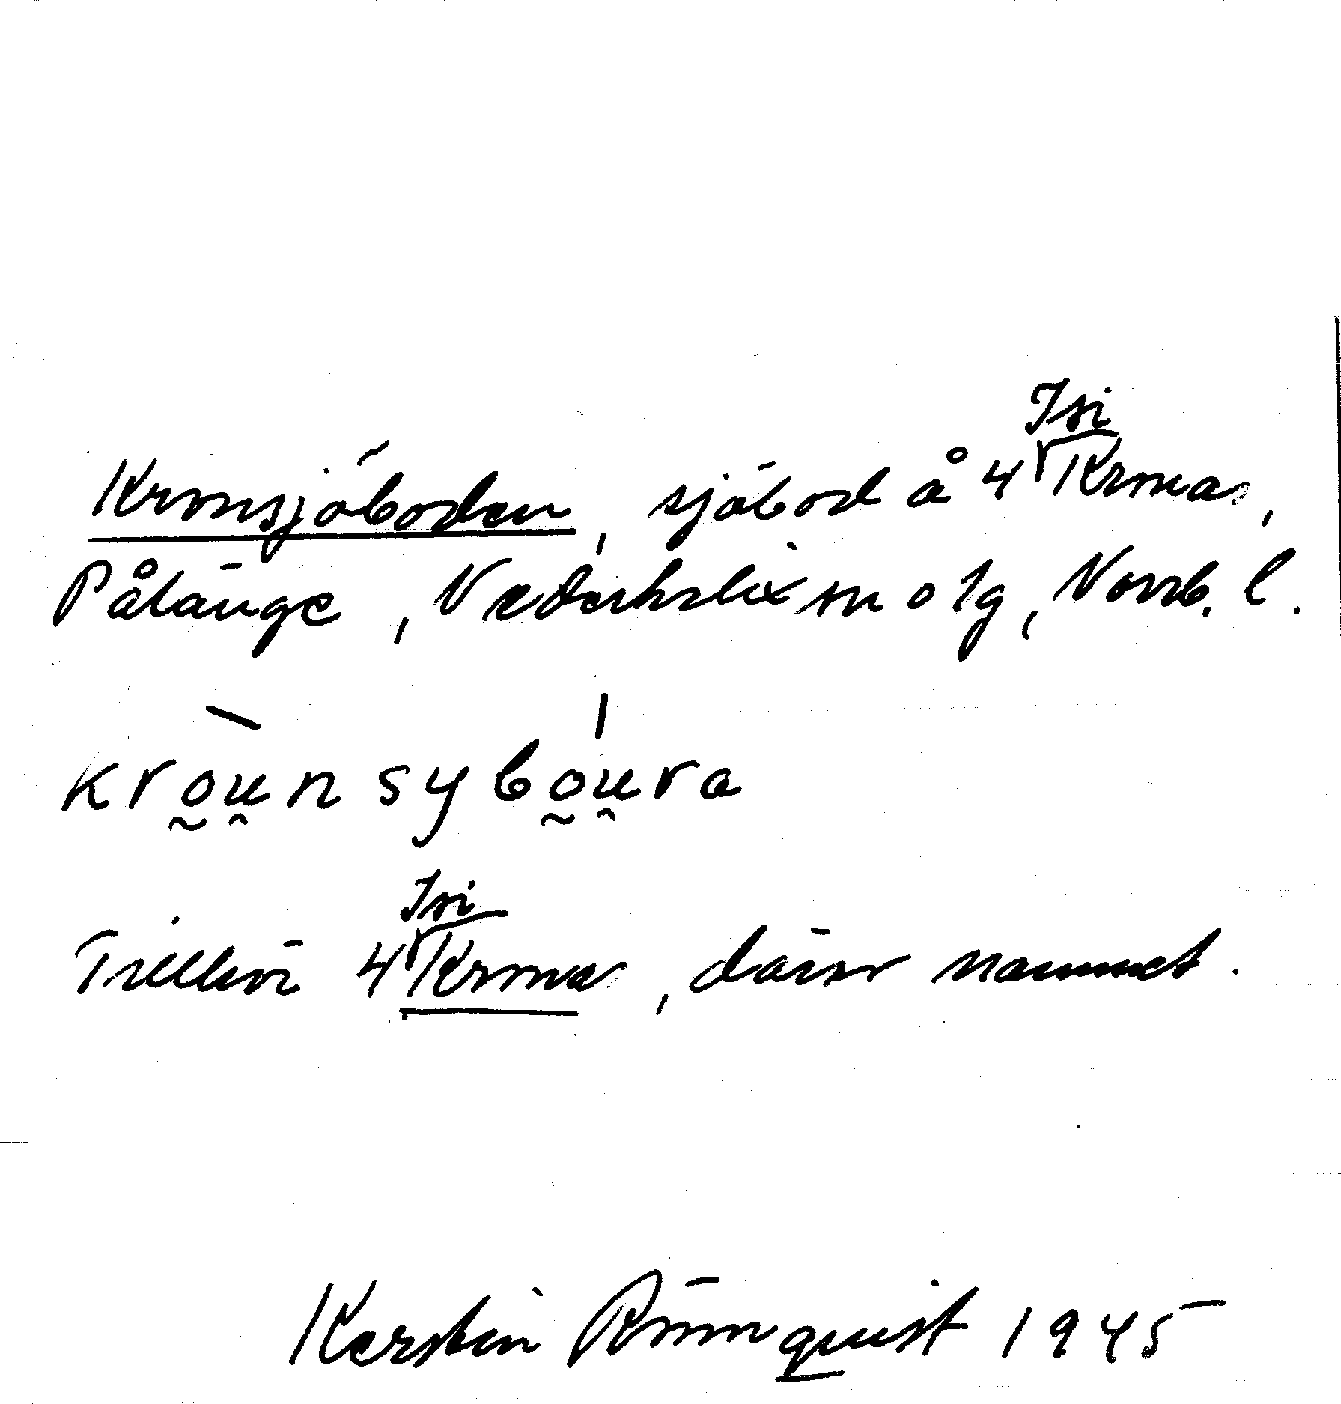 Kronsjöboden, sjöbod å 4 Isi Krona,
Pålänge, Nederkalix sn o tg, Norrb. l.
kroun syboura
Tillhör 4 Isi Krona, därav namnet.
Kerstin Rönnquist 1945